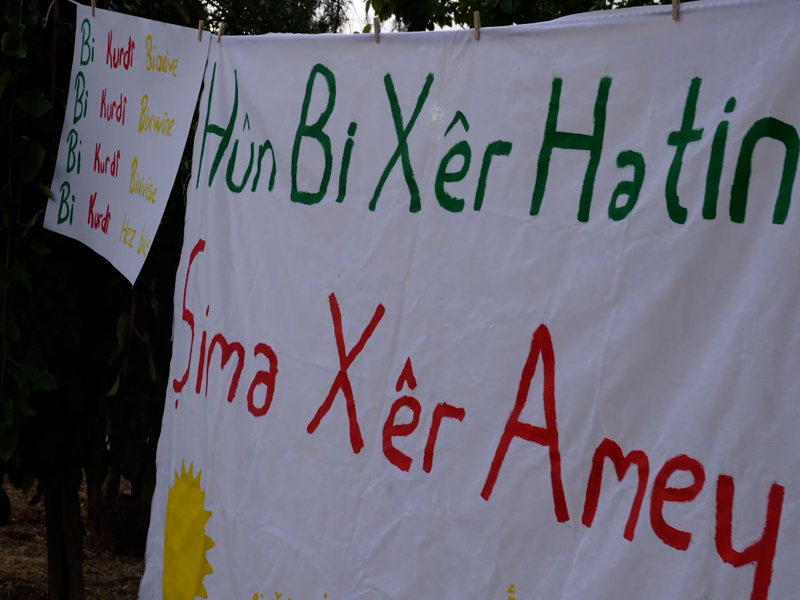 Bi Kurdî Biaxive
Bi Kurdî Bixwîne
Bi Kurdî Binivise
Bi Kurdî Hez bi
Hûn Bi Xêr Hatin
Şima Xêr Amey